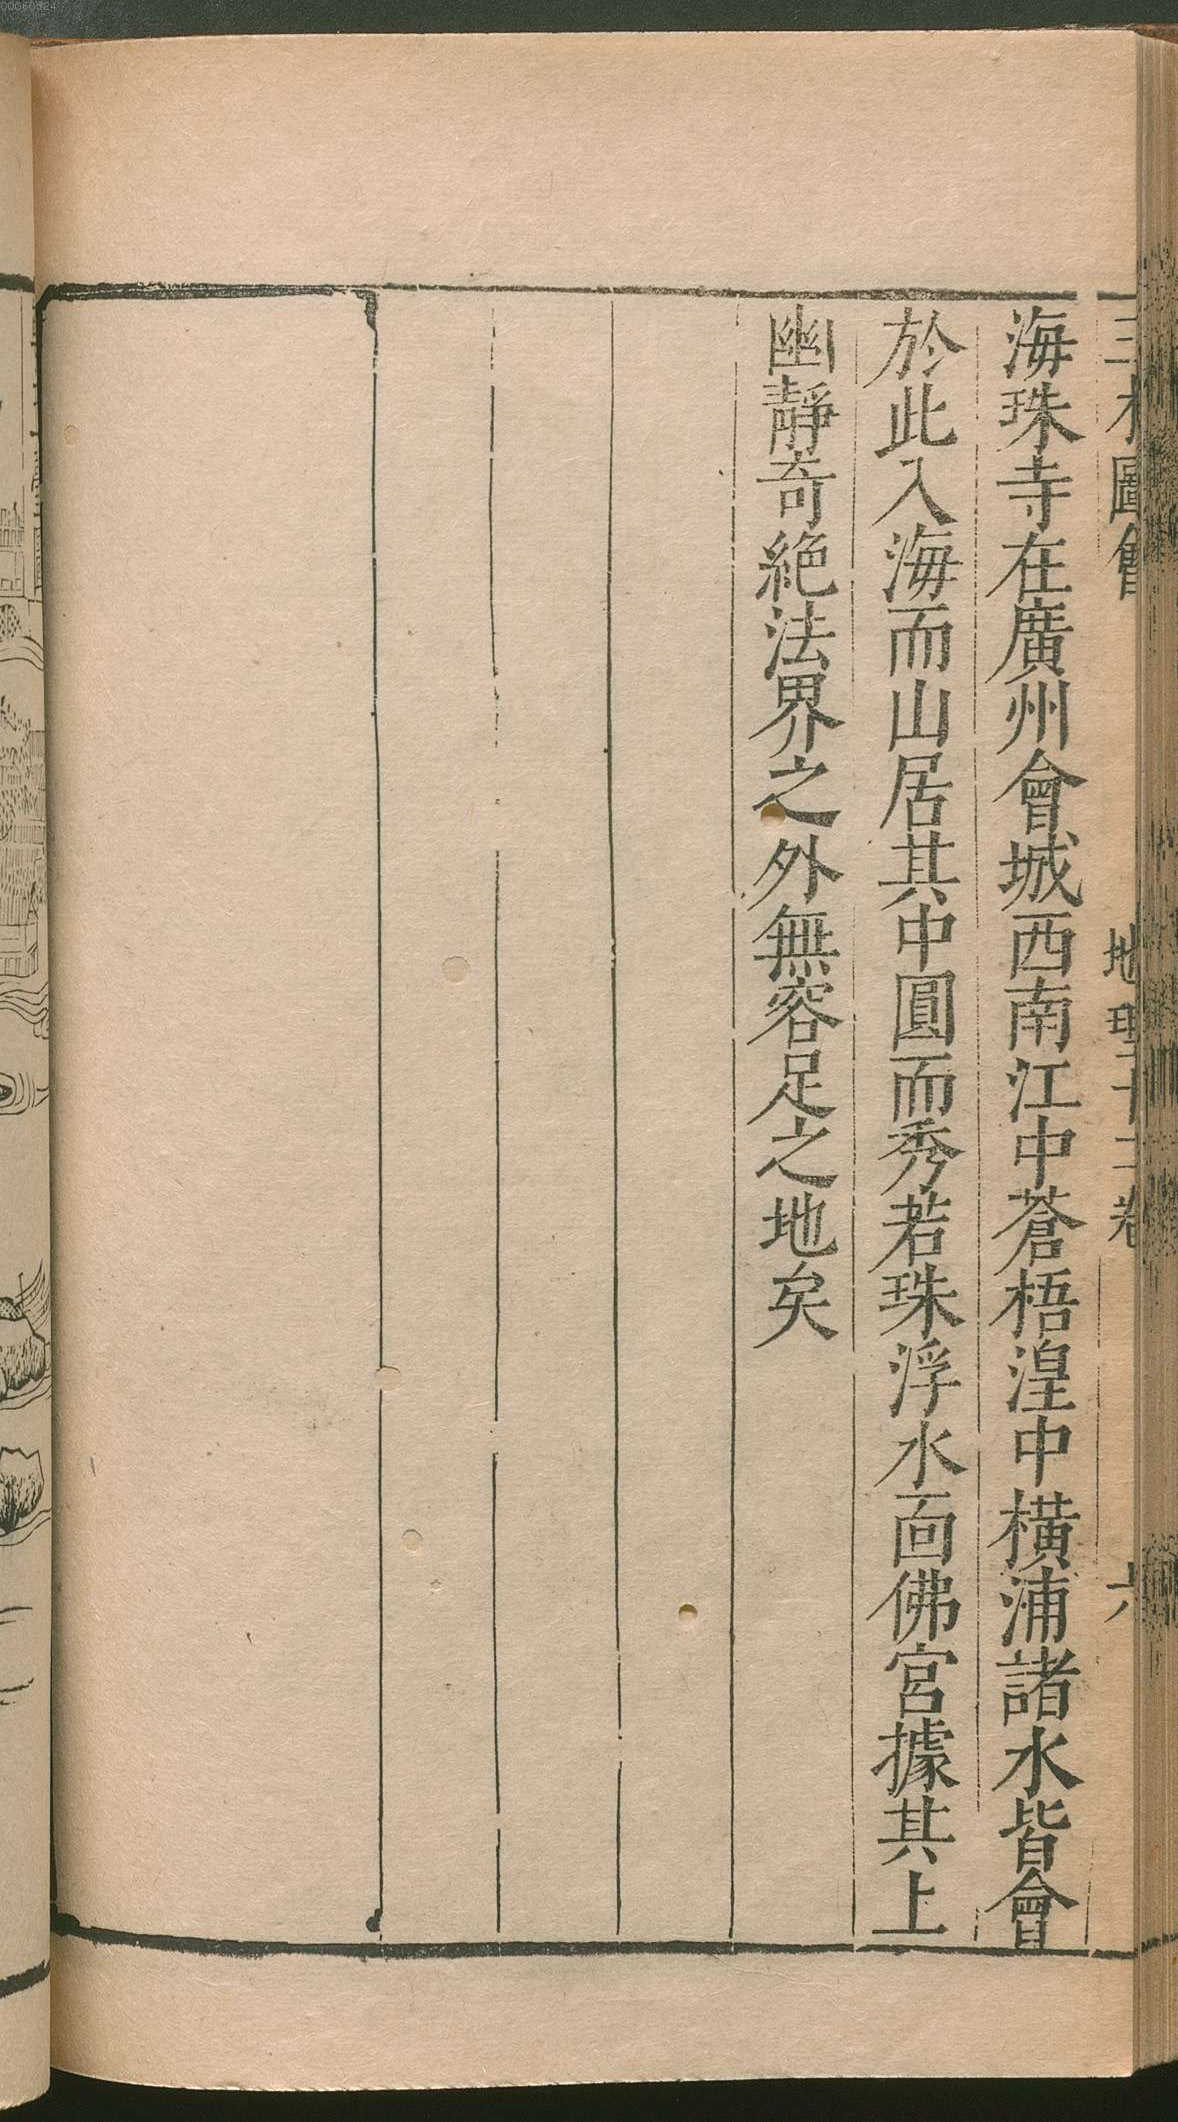 三才圖會 地理十二卷 六
海珠寺在廣州會城西南江中蒼梧湟中橫浦諸水皆會
於此入海而山居其中圓而秀若珠浮水面佛宮據其上
幽靜奇絶法界之外無容足之地矣